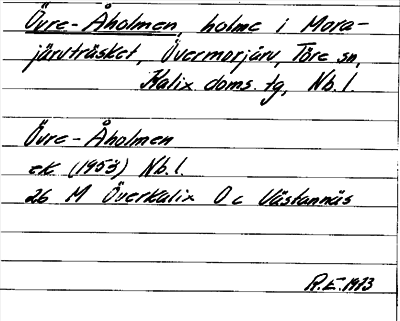 Övre-Åholmen, holme i Mora-
järvträsket, Övermorjärv, Töre sn,
Kalix doms. tg, Nb. l.
Övre-Åholmen
ek (1953) Nb. l.
26 M Överkalix O c Västannäs
R.E. 1973